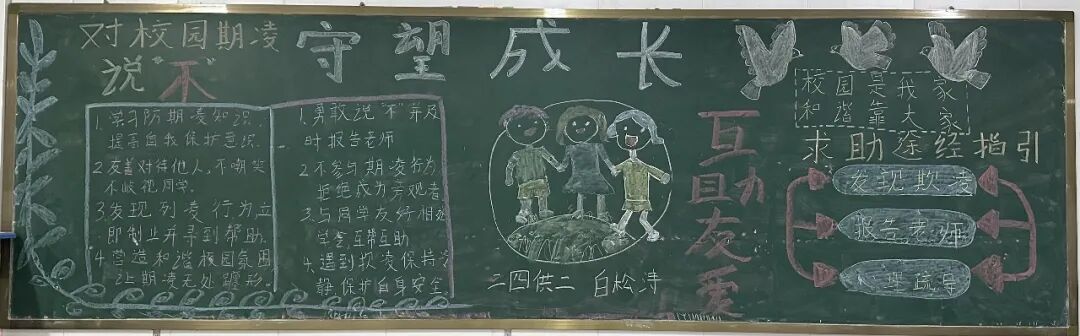 对校园期凌
说"不"
守望成长
1.学习防期凌知识.
提高自我保护意识.
2.友善对待他人,不嘲笑
不岐视同学.
3.发现列凌行为立
即制止并寻到帮助.
4.营造和谐校园氛围
让期凌无处遁形.
1.勇敢说"不"并及
时报告老师
2.不参与期凌行为
拒绝成为旁观者
3.与同学友好相处
学会互帮互助
4.遇到欺凌保持冷
静保护自身安全
二四供二 白松涛
互助友爱
校园是我家
和谐靠大家
求助途经指引
发现欺凌
报告老师
理疏导